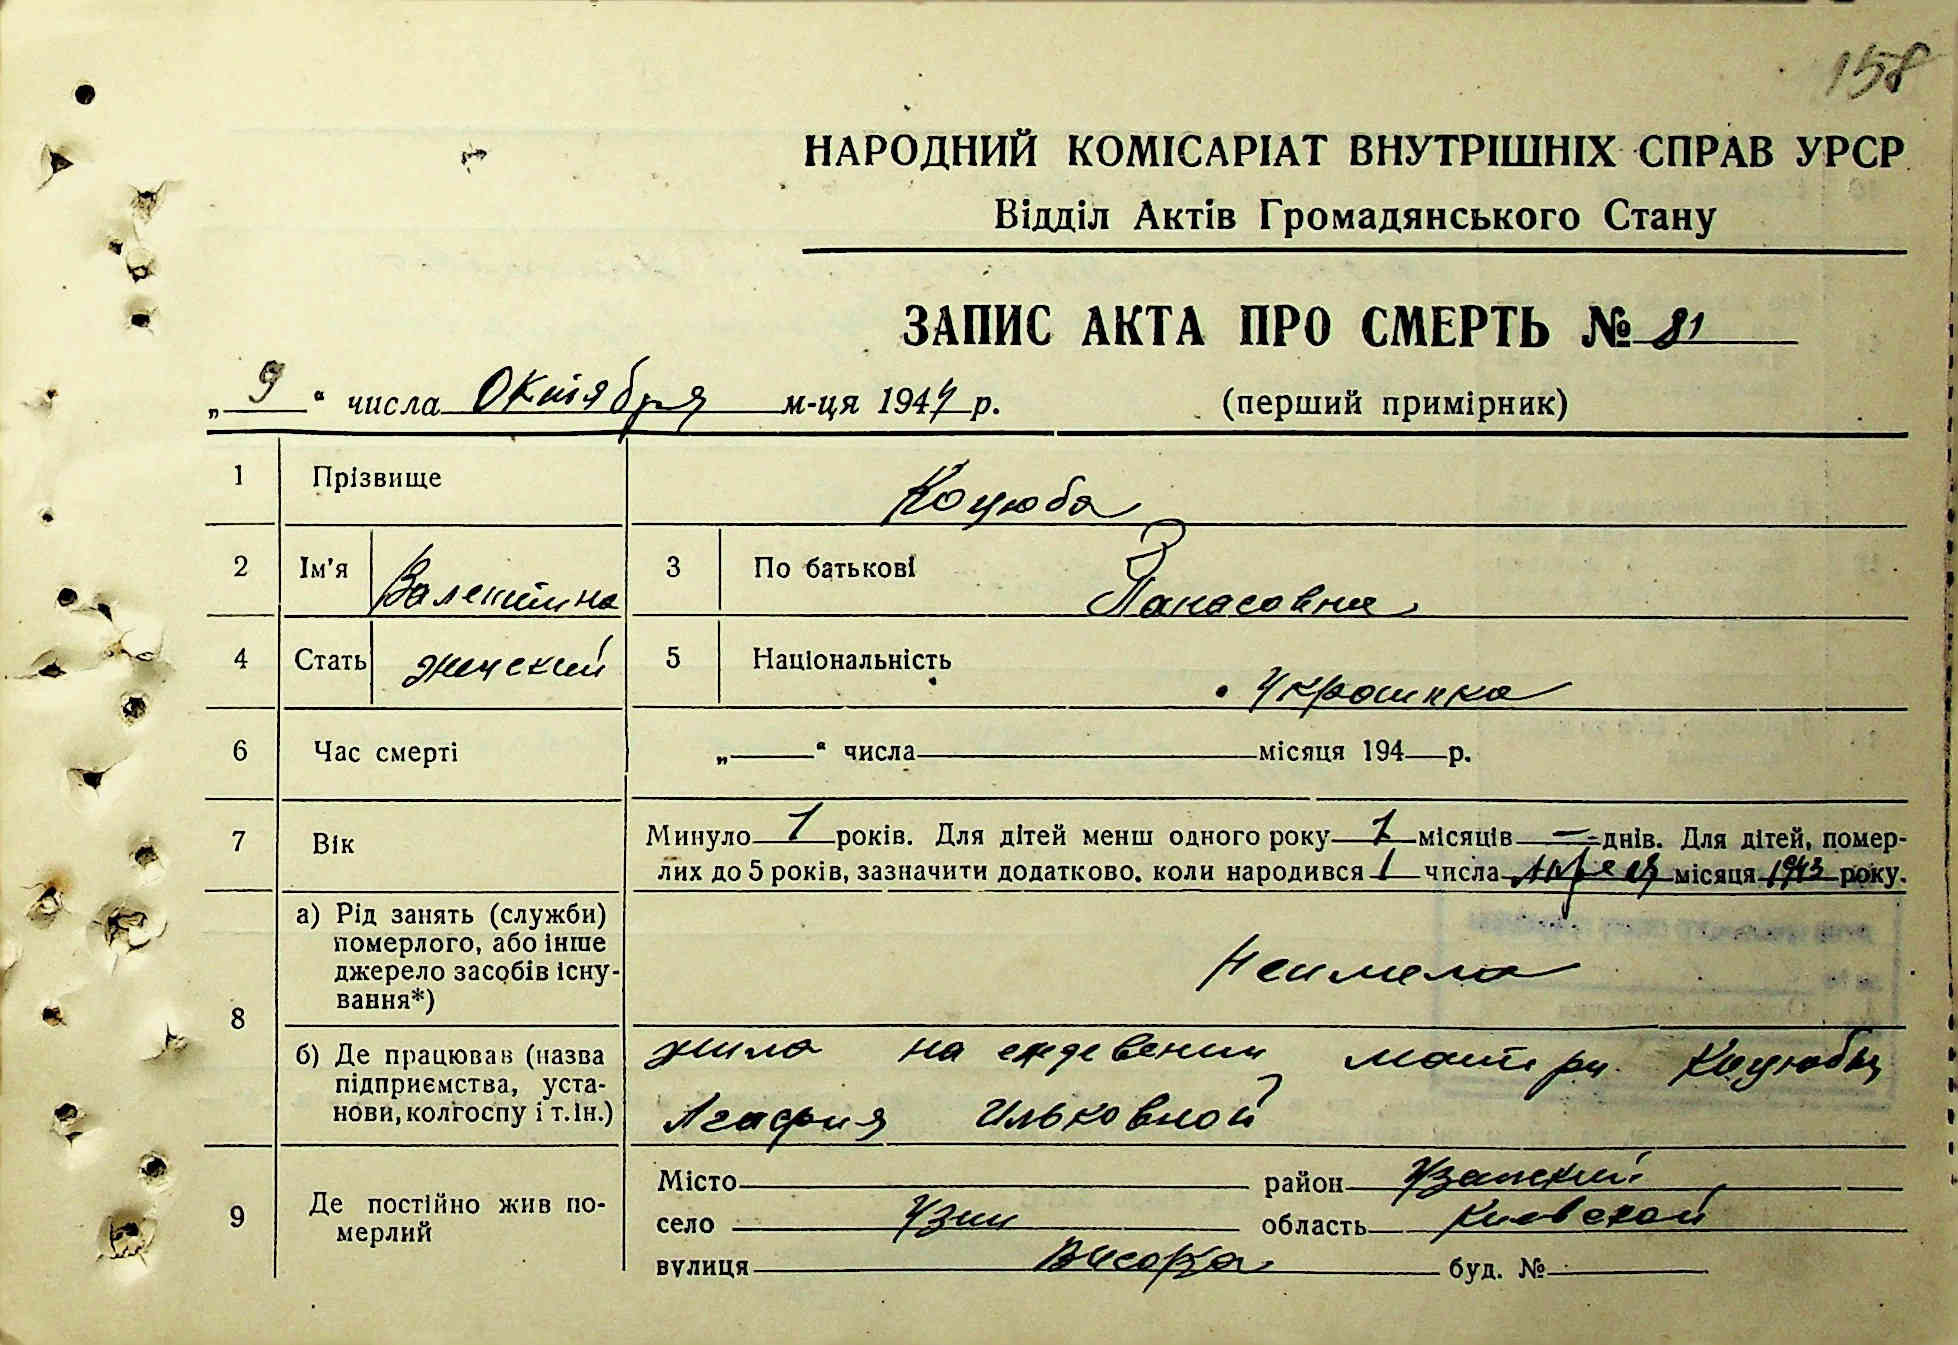 158
НАРОДНИЙ КОМІСАРІАТ ВНУТРІШНІХ СПРАВ УРСР
Відділ Актів Громадянського Стану
ЗАПИС АКТА ПРО СМЕРТЬ № 81
„ 9 " числа Октября м-ця 1944 р. (перший примірник)
1 Прізвище Коцюба
2 Ім'я Валентина 3 По батькові Панасовна
4 Стать женский 5 Національність Украинка
6 Час смерті „ " числа місяця 194 р.
7 Вік Минуло 1 років. Для дітей менш одного року 7 місяців = днів. Для дітей, помер-
лих до 5 років, зазначити додатково. коли народився 1 числа Апреля місяця 1943 року.
8 а) Рід занять (служби) померлого, або інше джерело засобів існу-
вання*) Неимела
б) Де працював (назва підприємства, уста-
нови, колгоспу і т. ін.) жила на матери Коцюбы
Агафия Ильковной
9 Де постійно жив по-
мерлий Місто район Узинский
село Узин область Киевской
вулиця буд. №